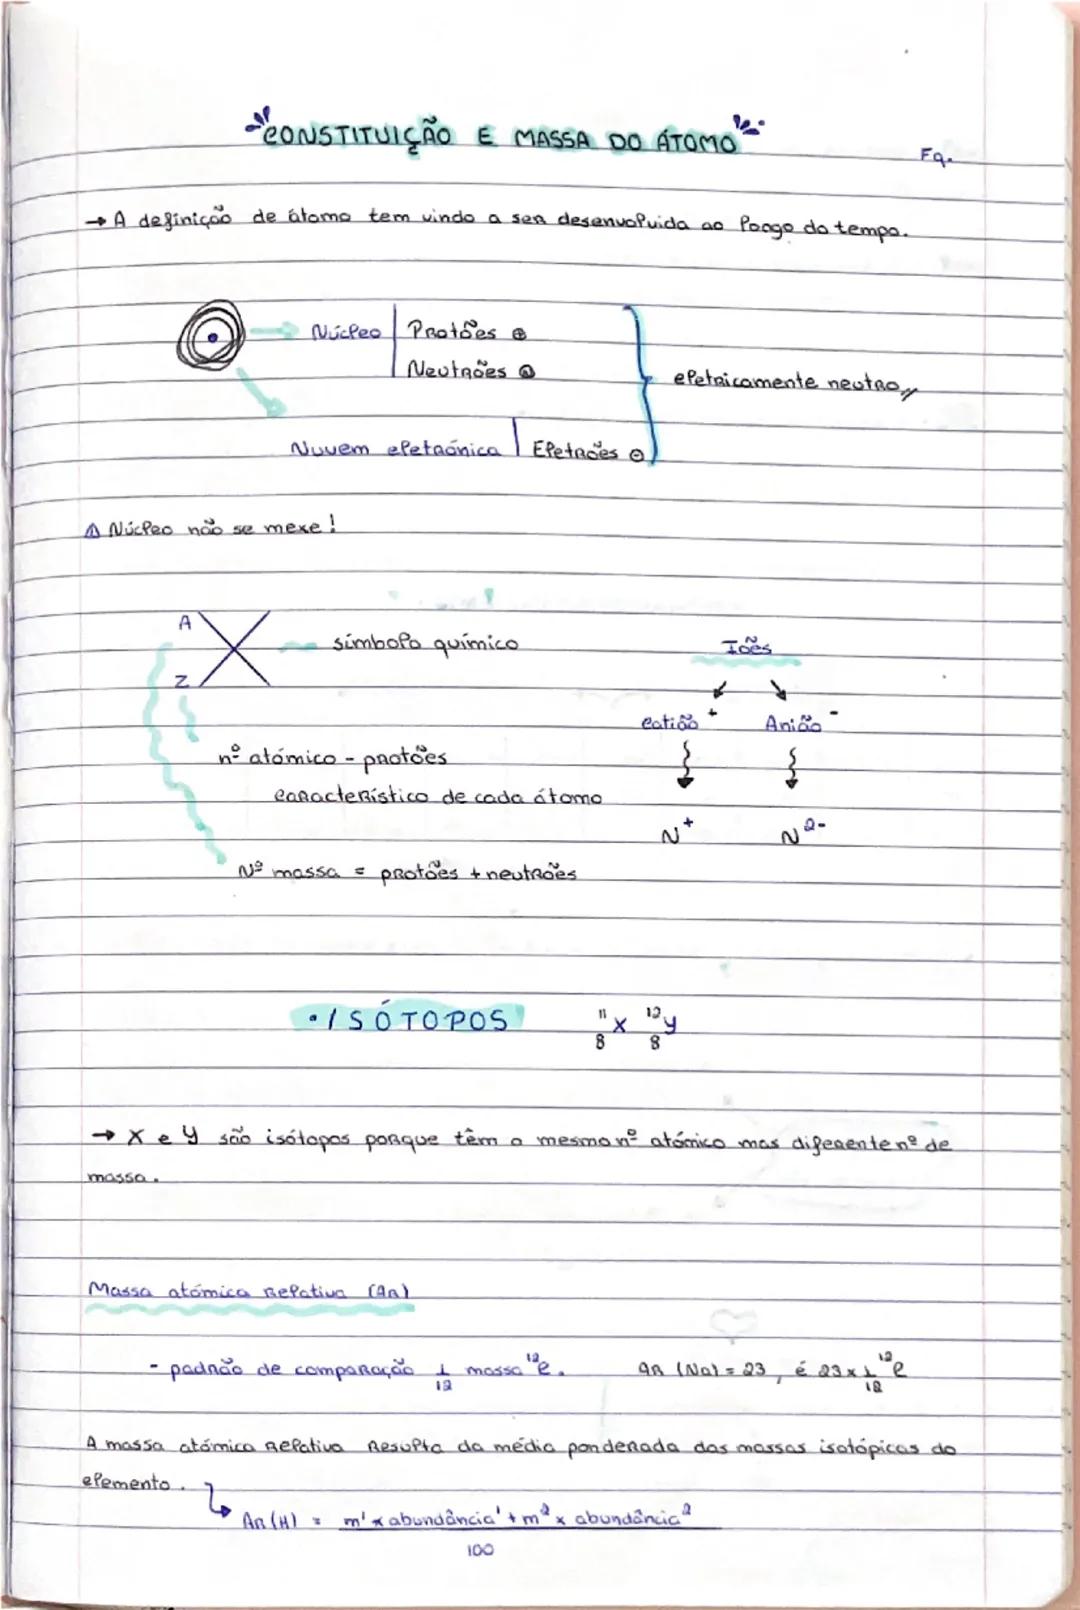 CONSTITUIÇÃO E MASSA DO ÁTOMO
Fq.
→ A definição de átomo tem vindo a ser desenvolvida ao longo do tempo.
Núcleo | Protões ⊕
Neutrões
eletricamente neutro
Nuvem eletrónica | Eletrões ⊖
⚠ Núcleo não se mexe!
A
X símbolo químico
Z
Iões
catião + Anião -
nº atómico - protões
característico de cada átomo
N⁺ N²⁻
Nº massa = protões + neutrões
• ISÓTOPOS ¹¹₈X ¹²₈Y
→ X e Y são isótopos porque têm o mesmo nº atómico mas diferente nº de
massa.
Massa atómica Relativa (Ar)
- padrão de comparação 1/12 massa ¹²C. Ar (Na) = 23, é 23 x 1/12 ¹²C
A massa atómica Relativa Resulta da média ponderada das massas isotópicas do
elemento.
↳ Ar (H) = m¹ x abundância¹ + m² x abundância²
100